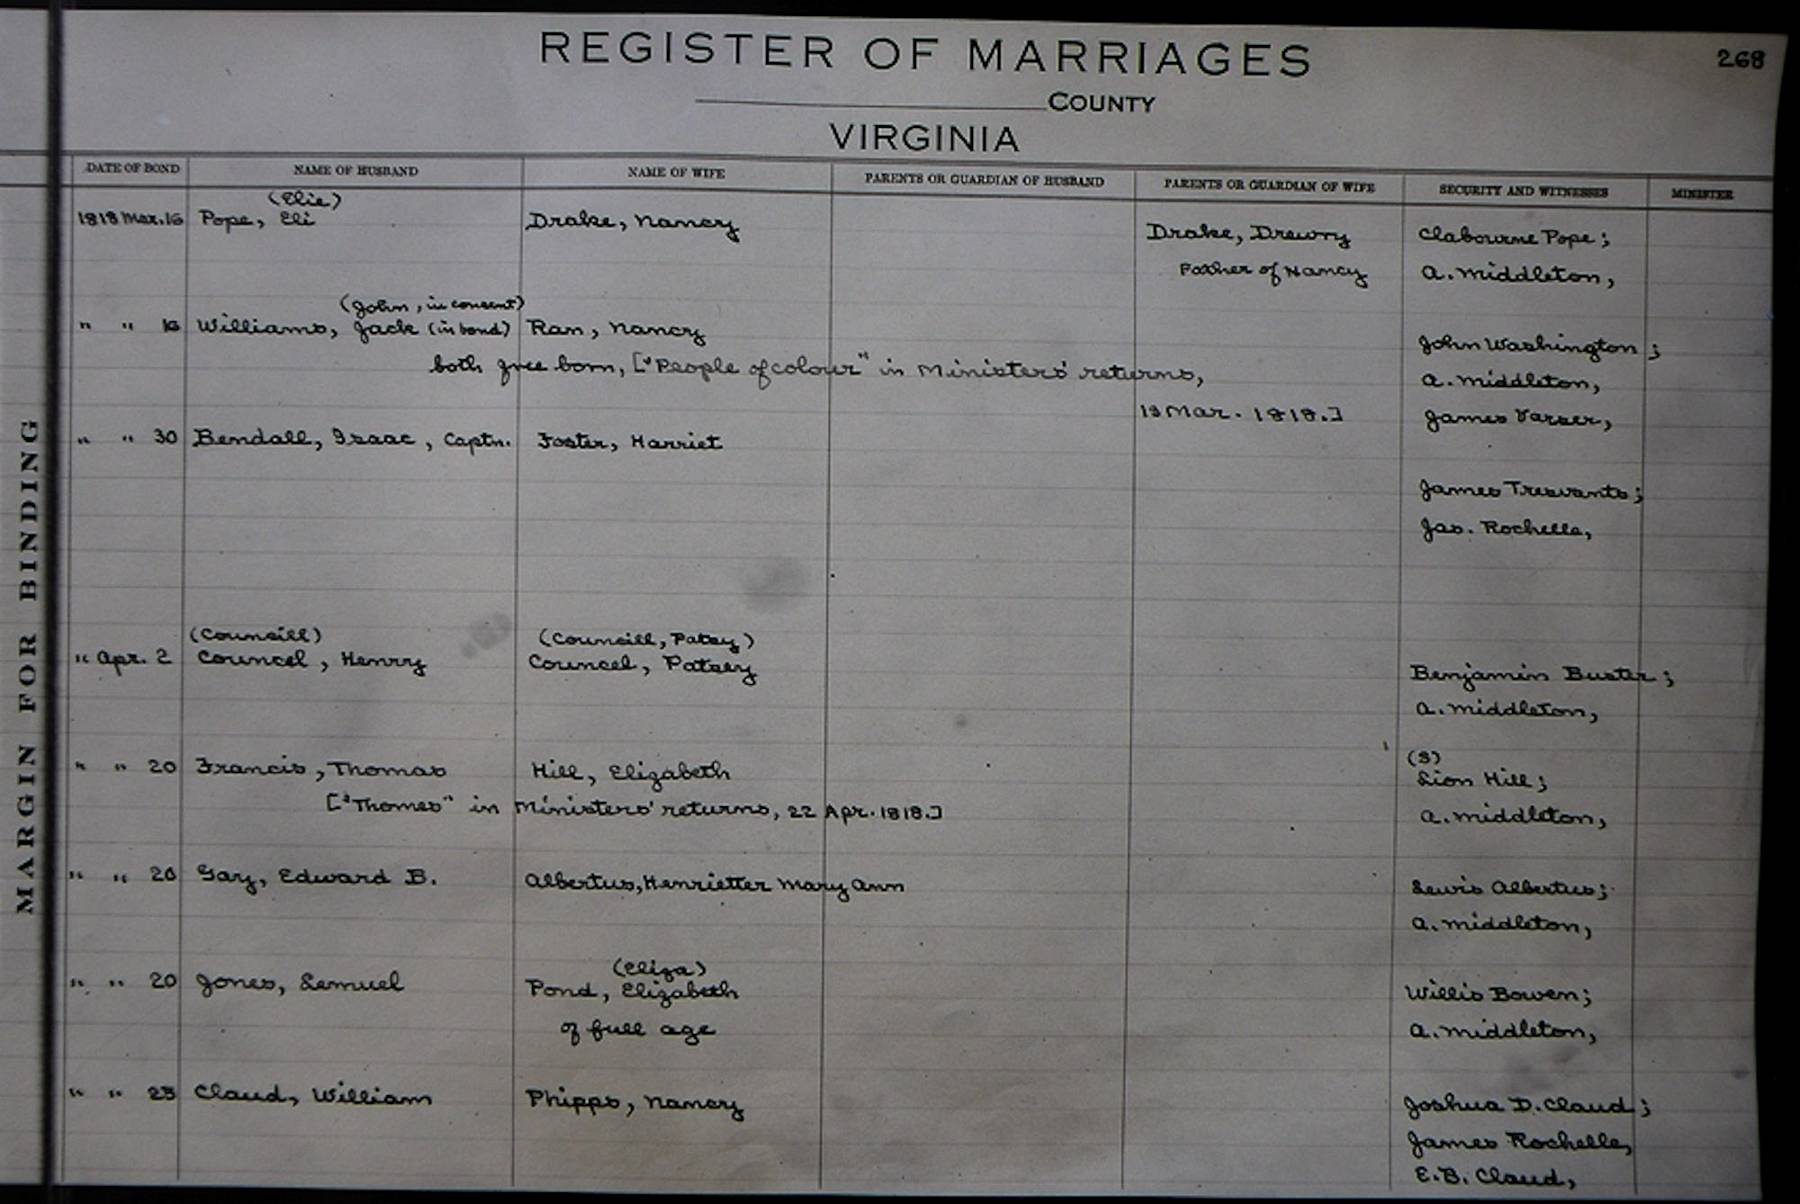 REGISTER OF MARRIAGES
268
COUNTY
VIRGINIA
MARGIN FOR BINDING
DATE OF BOND NAME OF HUSBAND NAME OF WIFE PARENTS OR GUARDIAN OF HUSBAND PARENTS OR GUARDIAN OF WIFE SECURITY AND WITNESSES MINISTER
(Elie)
1818 Mar. 16 Pope, Eli Drake, Nancy Drake, Drewry Clabourne Pope;
Father of Nancy A. Middleton,
(John, in consent)
" " 16 Williams, Jack (in bond) Ran, Nancy John Washington;
both free born, ["People of colour" in Ministers' returns, A. Middleton,
19 Mar. 1818.] James Vaser,
" " 30 Bendall, Isaac, Captn. Foster, Harriet
James Tresvants;
Jas. Rochelle,
(Councill) (Councill, Patsy)
" Apr. 2 Councel, Henry Councel, Patsey Benjamin Buster;
A. Middleton,
(S)
" " 20 Francis, Thomas Hill, Elizabeth Lion Hill;
["Thomes" in Ministers' returns, 22 Apr. 1818.] A. Middleton,
" " 20 Gay, Edward B. Albertus, Henrietter Mary Ann Lewis Albertus;
A. Middleton,
(Eliza)
" " 20 Jones, Lemuel Pond, Elizabeth Willis Bowen;
of full age A. Middleton,
" " 25 Claud, William Phipps, Nancy Joshua D. Claud;
James Rochelle,
E.B. Claud,